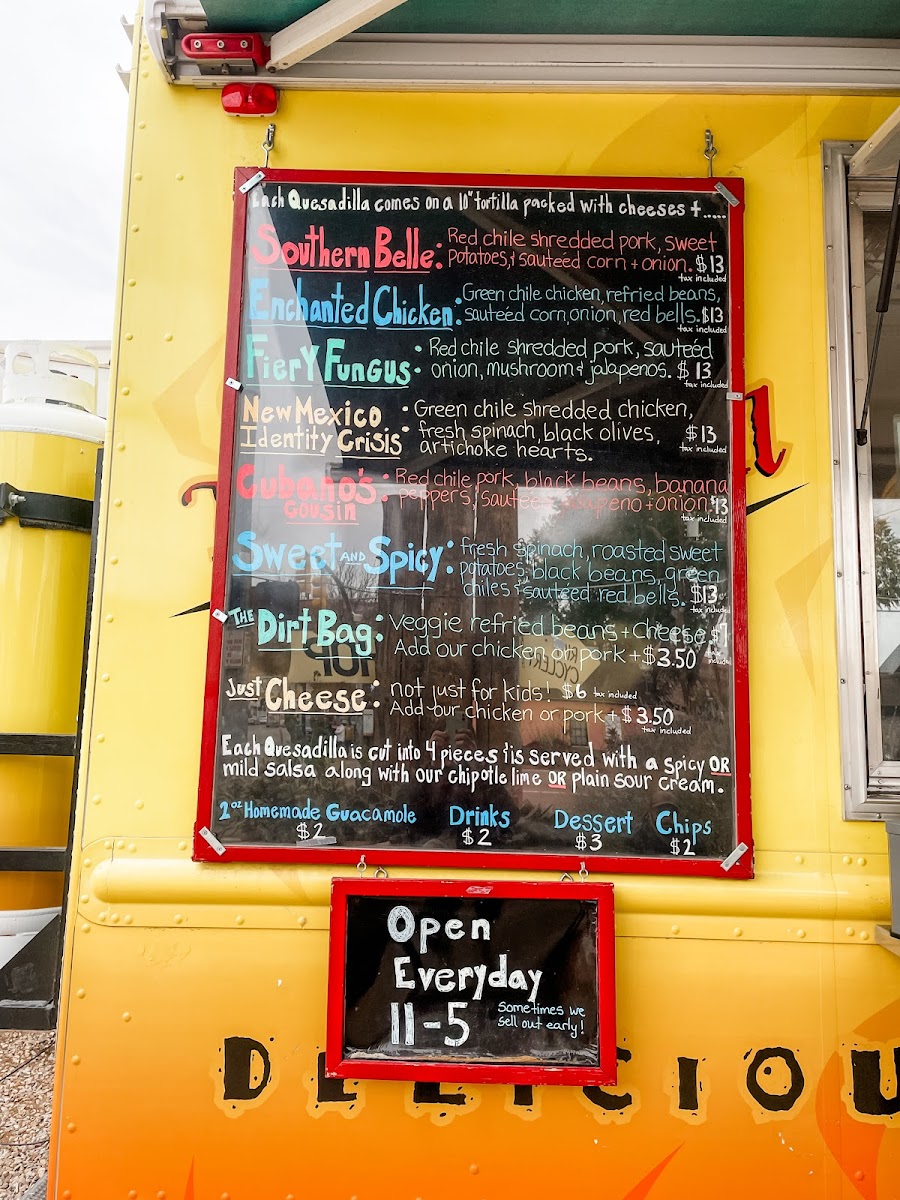 Each Quesadilla comes on a 10" tortilla packed with cheeses + .....
Southern Belle: Red chile shredded pork, sweet
potatoes, + sautéed corn + onion. $13
tax included
Enchanted Chicken: Green chile chicken, refried beans,
sautéed corn, onion, red bells. $13
tax included
Fiery Fungus: Red chile shredded pork, sautéed
onion, mushroom + jalapenos. $13
tax included
New Mexico
Identity Crisis: Green chile shredded chicken,
fresh spinach, black olives, $13
artichoke hearts.
tax included
Cubano's
Cousin: Red chile pork, black beans, banana
peppers, onion. $13
tax included
Sweet AND Spicy: fresh spinach, roasted sweet
potatoes, black beans, green
chiles + sautéed red bells. $13
tax included
THE Dirt Bag: veggie refried beans + cheese $7
Add our chicken or pork + $3.50
tax included
Just Cheese: not just for kids! $6 tax included
Add our chicken or pork + $3.50
tax included
Each Quesadilla is cut into 4 pieces + is served with a spicy OR
mild salsa along with our chipotle lime OR plain sour cream.
2oz Homemade Guacamole Drinks Dessert Chips
$2 $2 $3 $2
Open
Everyday
11-5
Sometimes we
sell out early!